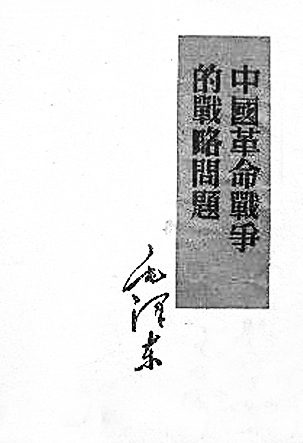 中國革命戰爭
的戰略問題
毛澤东